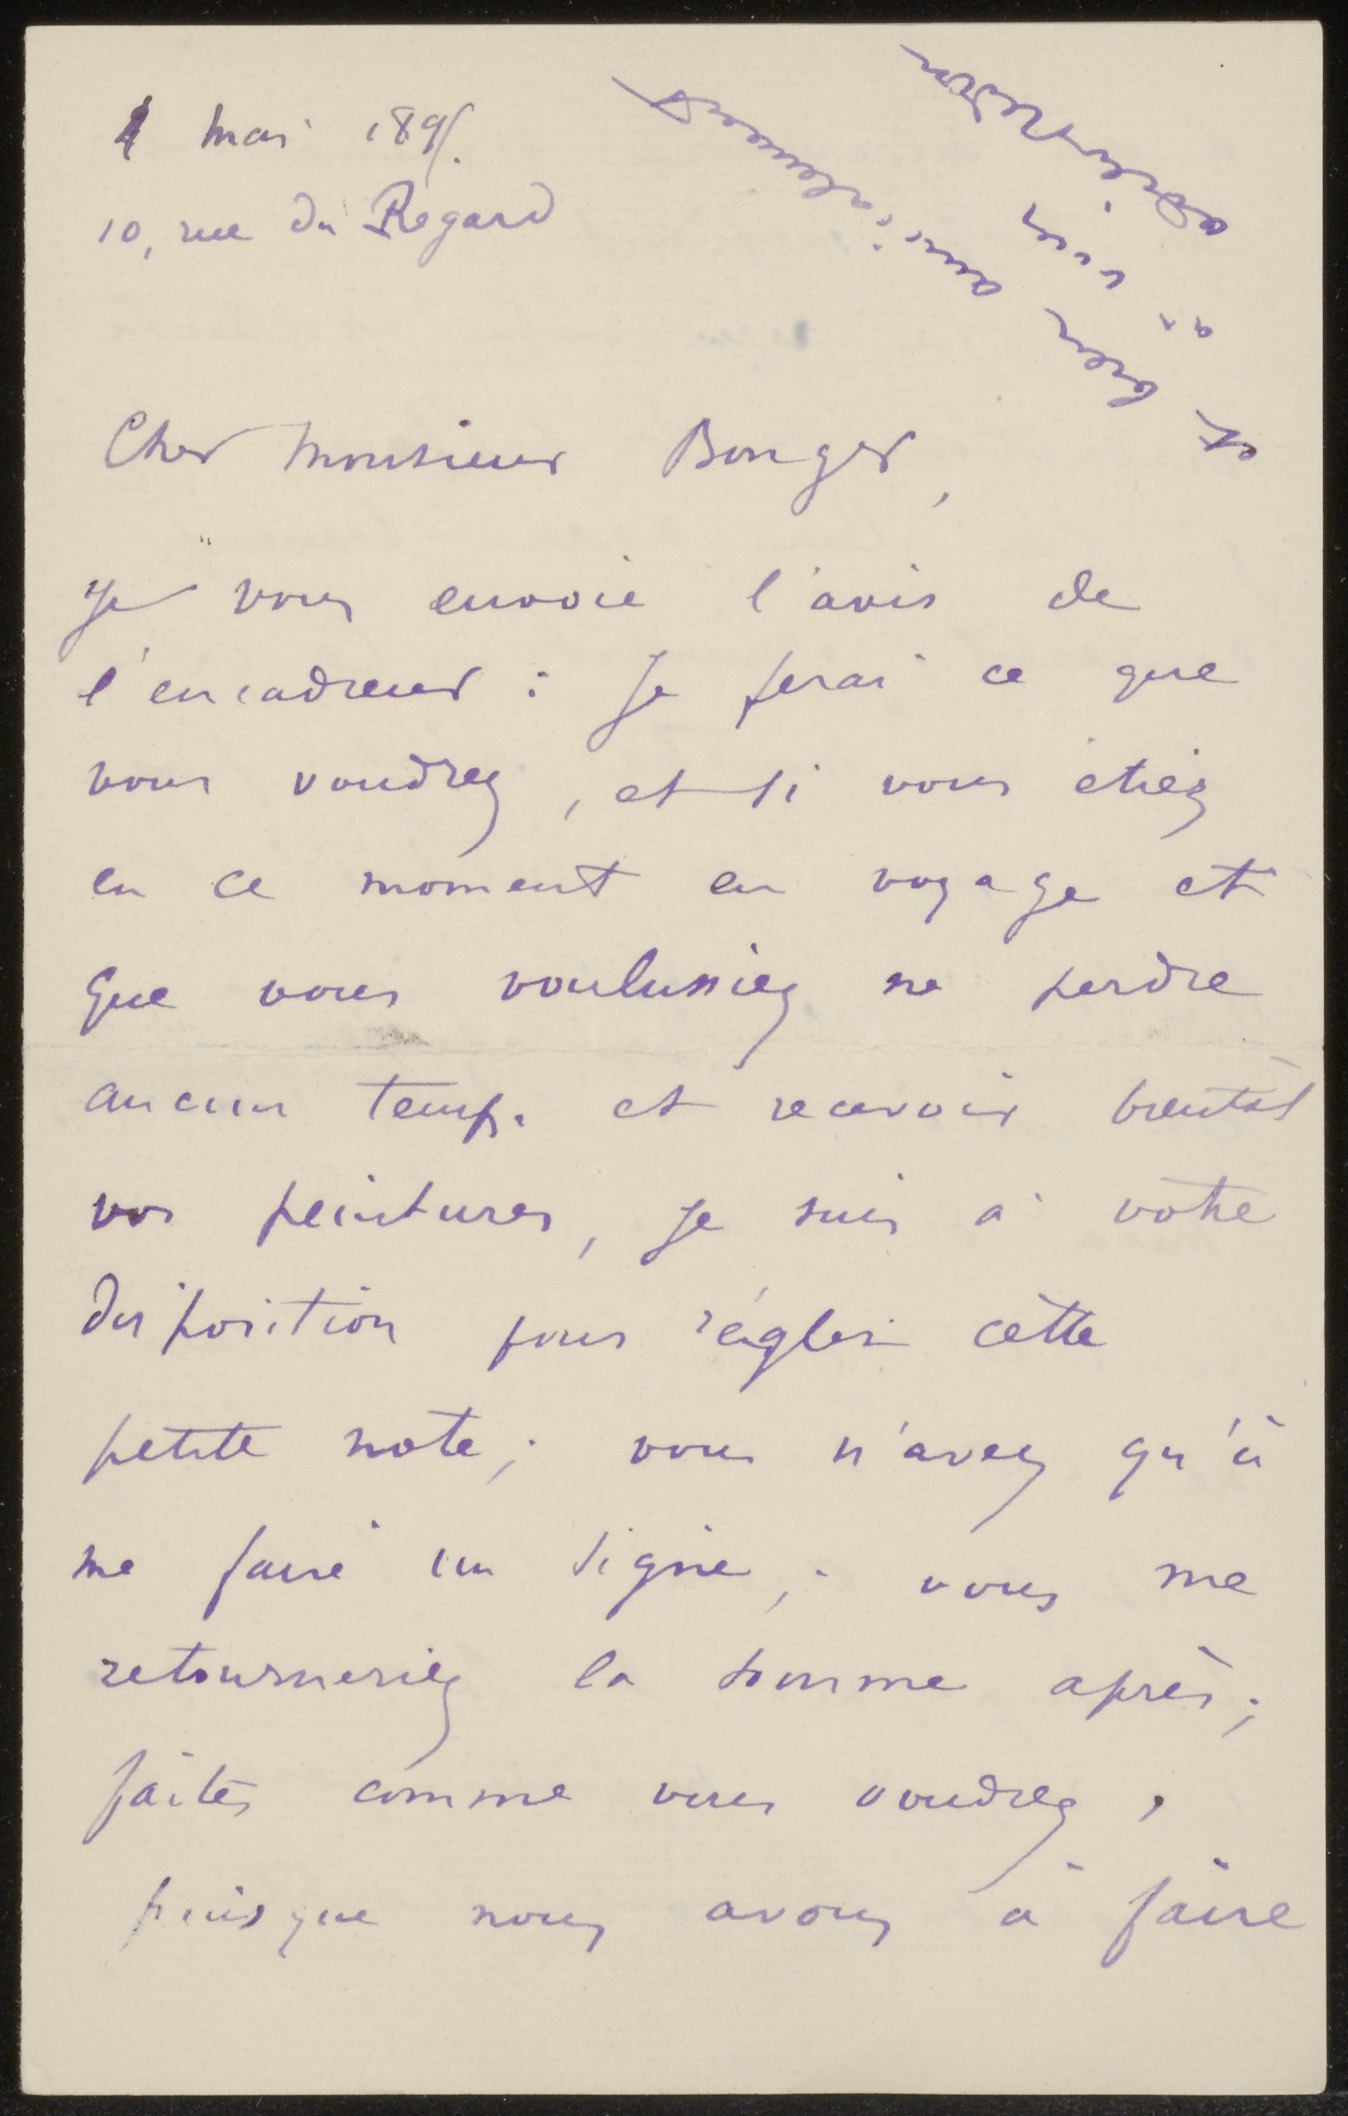 4 mai 1895.
10, rue du Regard
Cher Monsieur Bonger,
Je vous envoie l'avis de
l'encadreur : Je ferai ce que
vous voudrez, et si vous étiez
en ce moment en voyage et
que vous voulussiez ne perdre
aucun temps et recevoir bientôt
vos peintures, je suis à votre
disposition pour régler cette
petite note ; vous n'avez qu'à
me faire un signe ; vous me
retourneriez la somme après ;
faites comme vous voudrez.
puisque nous avons à faire
et bien amicalement
à vous
odilon Redon